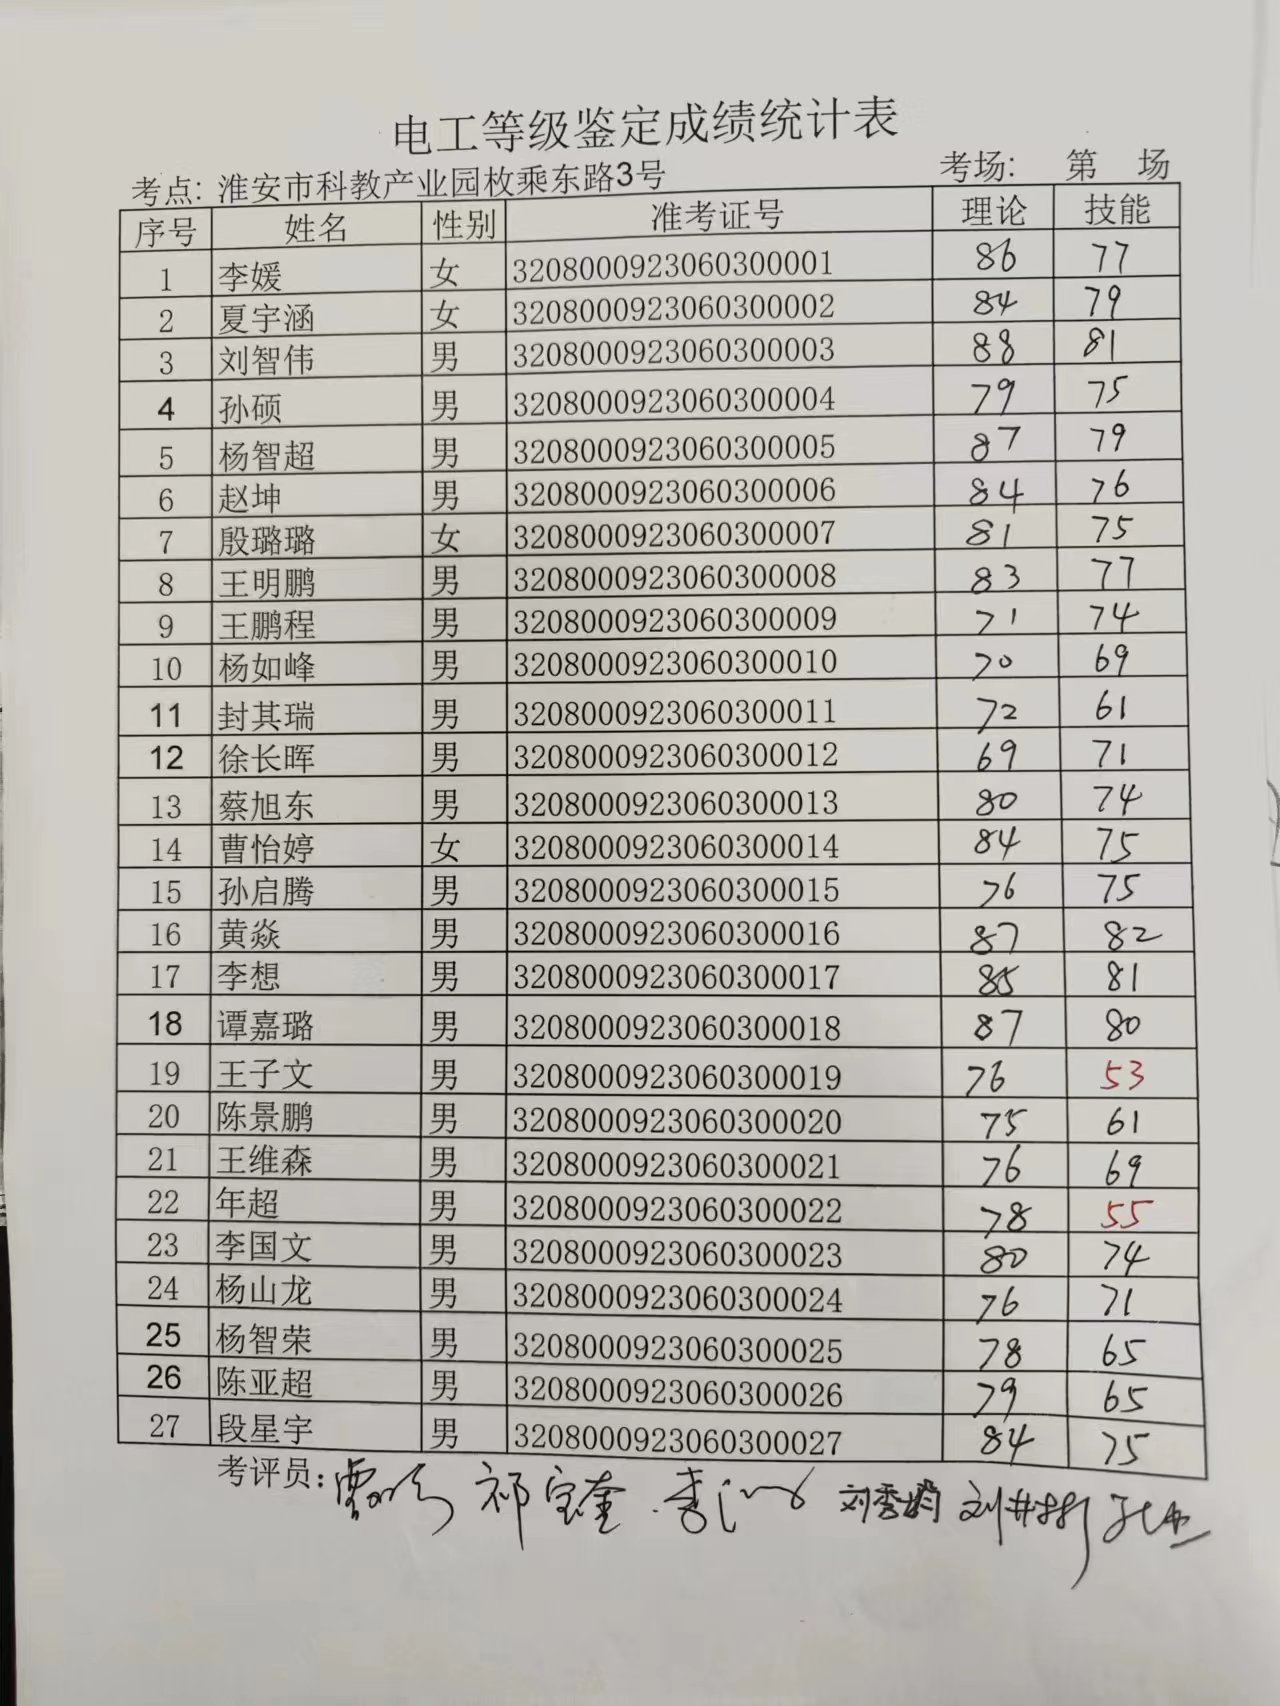 电工等级鉴定成绩统计表
考点: 淮安市科教产业园枚乘东路3号 考场: 第 场
序号 姓名 性别 准考证号 理论 技能
1 李媛 女 3208000923060300001 86 77
2 夏宇涵 女 3208000923060300002 84 79
3 刘智伟 男 3208000923060300003 88 81
4 孙硕 男 3208000923060300004 79 75
5 杨智超 男 3208000923060300005 87 79
6 赵坤 男 3208000923060300006 84 76
7 殷璐璐 女 3208000923060300007 81 75
8 王明鹏 男 3208000923060300008 83 77
9 王鹏程 男 3208000923060300009 71 74
10 杨如峰 男 3208000923060300010 70 69
11 封其瑞 男 3208000923060300011 72 61
12 徐长晖 男 3208000923060300012 69 71
13 蔡旭东 男 3208000923060300013 80 74
14 曹怡婷 女 3208000923060300014 84 75
15 孙启腾 男 3208000923060300015 76 75
16 黄焱 男 3208000923060300016 87 82
17 李想 男 3208000923060300017 85 81
18 谭嘉璐 男 3208000923060300018 87 80
19 王子文 男 3208000923060300019 76 53
20 陈景鹏 男 3208000923060300020 75 61
21 王维森 男 3208000923060300021 76 69
22 年超 男 3208000923060300022 78 55
23 李国文 男 3208000923060300023 80 74
24 杨山龙 男 3208000923060300024 76 71
25 杨智荣 男 3208000923060300025 78 65
26 陈亚超 男 3208000923060300026 79 65
27 段星宇 男 3208000923060300027 84 75
考评员: 祁宝奎 刘秀娟